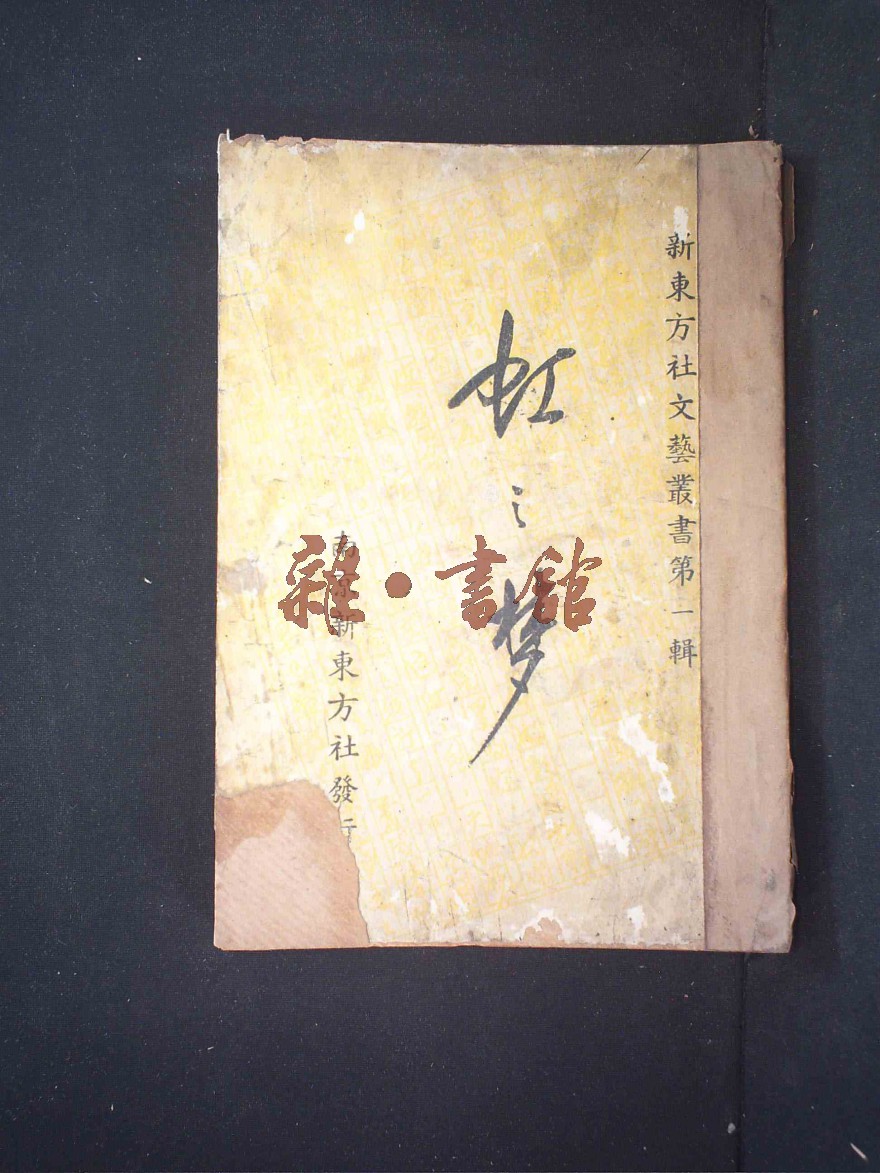 新東方社文藝叢書第一輯
虹之梦
南京新東方社發行
雜·書館